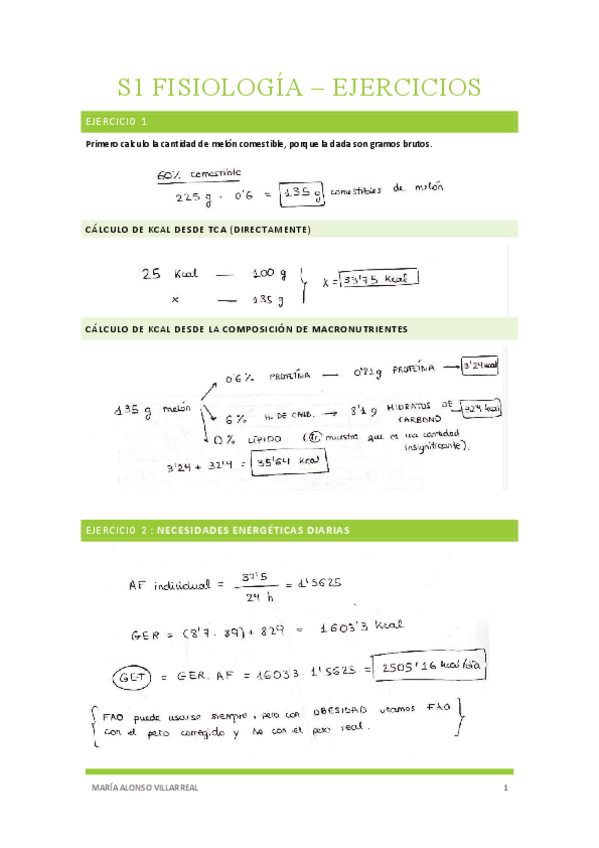 S1 FISIOLOGÍA – EJERCICIOS
EJERCICIO 1
Primero calculo la cantidad de melón comestible, porque la dada son gramos brutos.
60% comestible
225 g · 0'6 = 135 g comestibles de melón
CÁLCULO DE KCAL DESDE TCA (DIRECTAMENTE)
25 Kcal — 100 g
x — 135 g
x = 33'75 Kcal
CÁLCULO DE KCAL DESDE LA COMPOSICIÓN DE MACRONUTRIENTES
0'6% PROTEÍNA → 0'81g PROTEÍNA → 3'24 kcal
135 g melón
6% H. DE CARB. → 8'1 g HIDRATOS DE CARBONO → 32'4 kcal
0% LÍPIDO (Tr muestra que es una cantidad
insignificante).
3'24 + 32'4 = 35'64 kcal
EJERCICIO 2 : NECESIDADES ENERGÉTICAS DIARIAS
AF individual = 37'5 / 24 h = 1'5625
GER = (8'7 · 89) + 829 = 1603'3 kcal
GET = GER. AF = 1603'3 · 1'5625 = 2505'16 kcal/día
FAO puede usarse siempre, pero con OBESIDAD usamos FAO
con el peso corregido y no con el peso real.
MARÍA ALONSO VILLARREAL 1